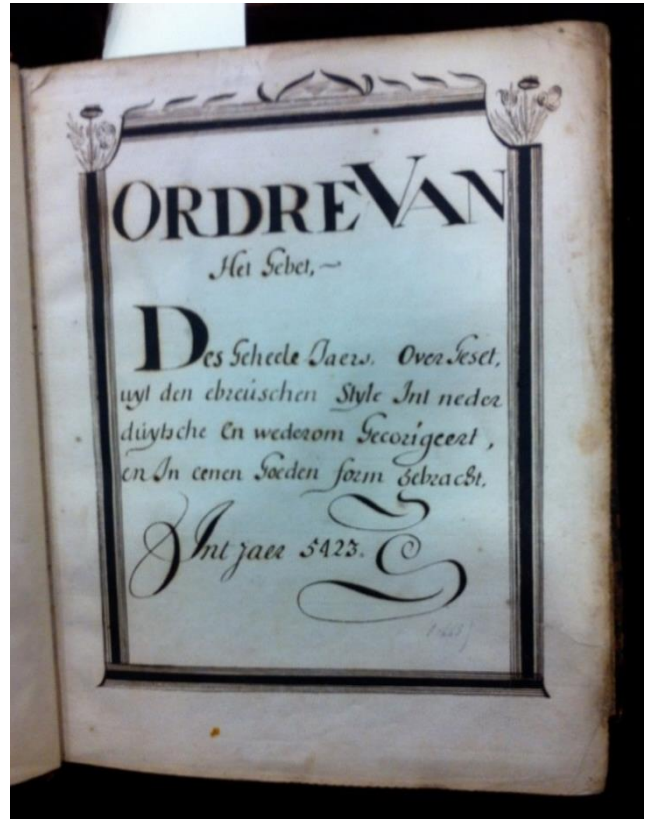 ORDRE VAN
Het Gebet,~
Des Geheele Jaers. Over Geset,
uyt den ebreüschen Style Int neder
düytsche En wederom Gecorigeert,
en In eenen Goeden form gebracht.
Int jaer 5423.